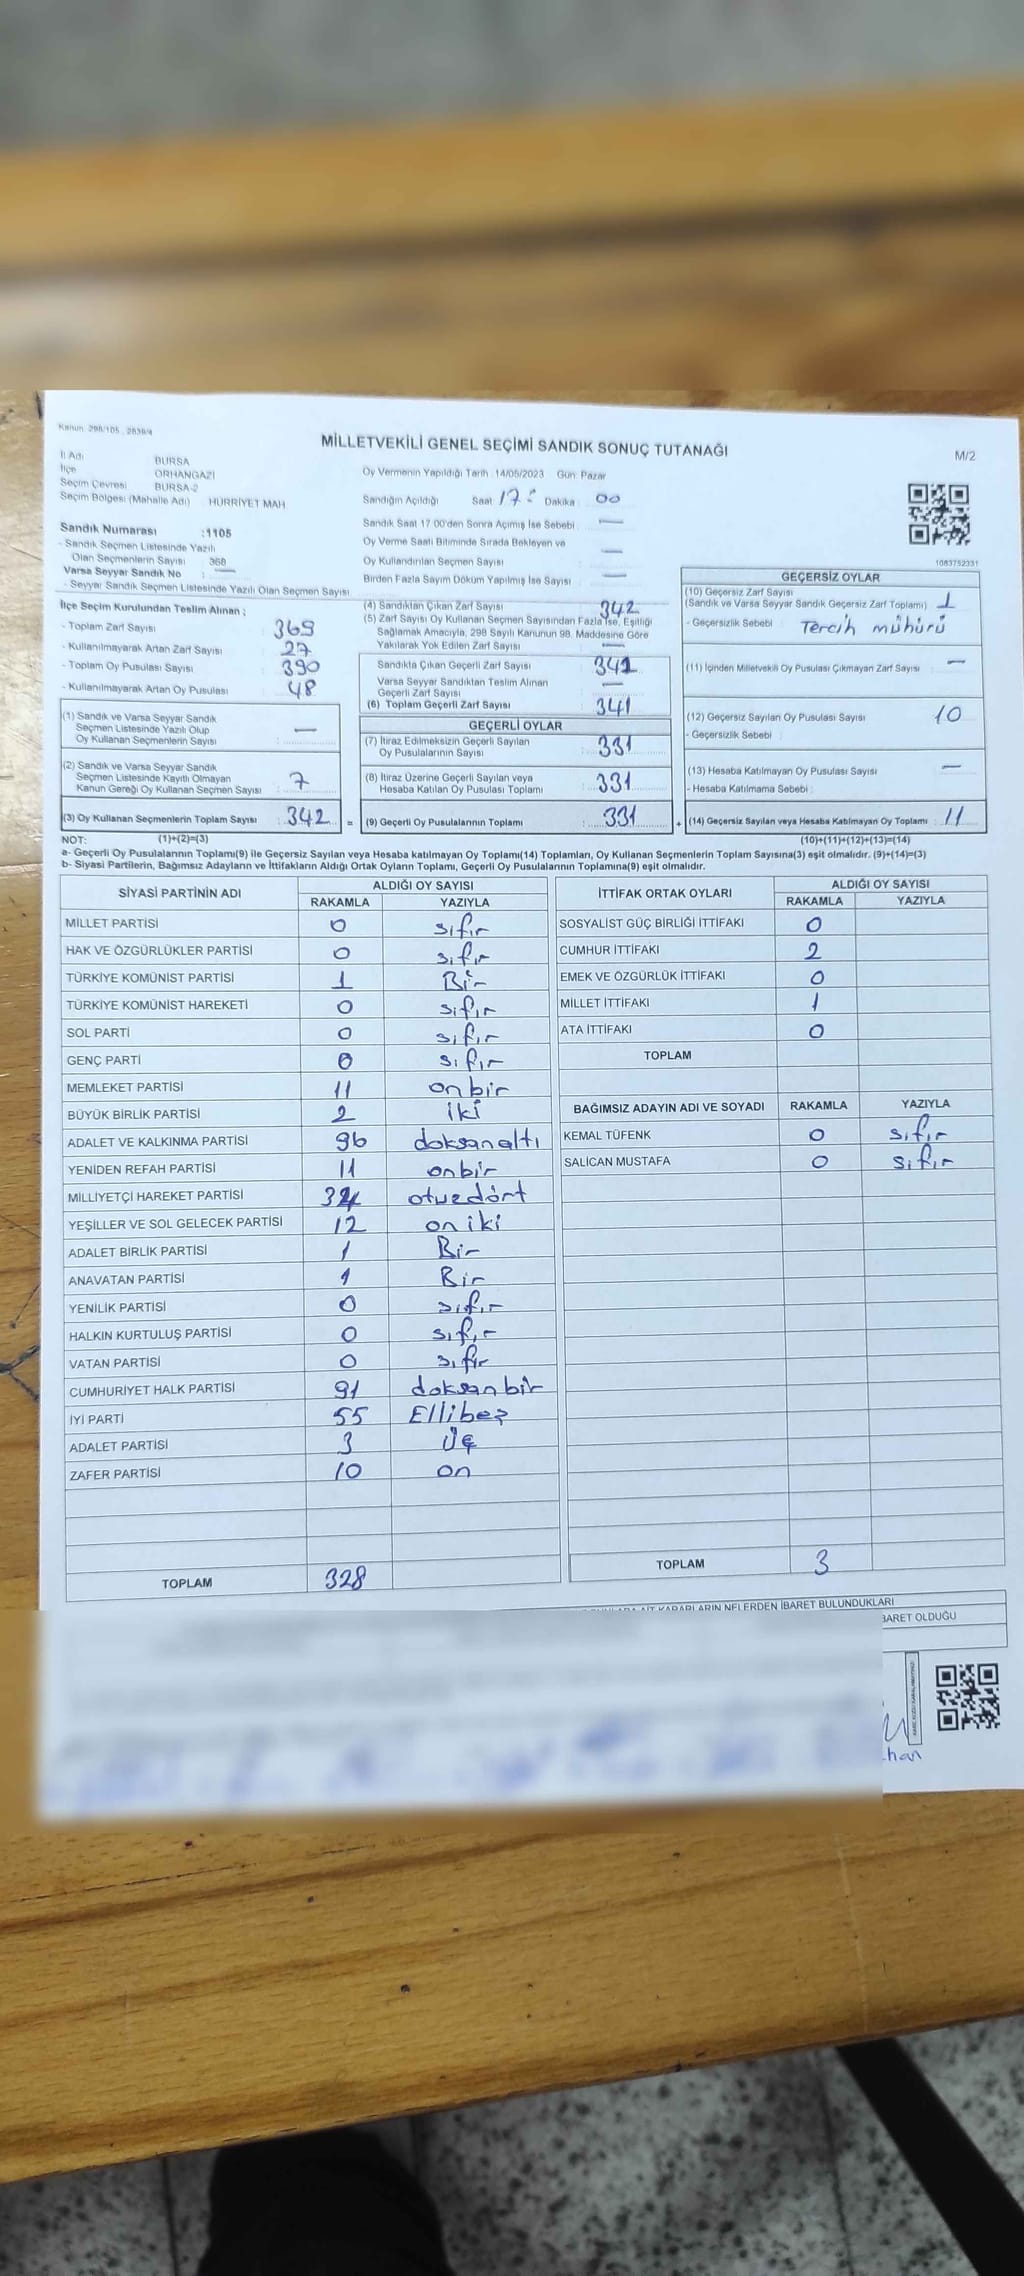 Kanun: 298/105 , 2839/4
MİLLETVEKİLİ GENEL SEÇİMİ SANDIK SONUÇ TUTANAĞI
M/2
İl Adı BURSA
İlçe ORHANGAZİ
Seçim Çevresi BURSA-2
Seçim Bölgesi (Mahalle Adı) : HÜRRİYET MAH
Oy Vermenin Yapıldığı Tarih : 14/05/2023 Gün: Pazar
Sandığın Açıldığı Saat 17: Dakika 00
Sandık Saat 17 00'den Sonra Açımış İse Sebebi : —
Oy Verme Saati Bitiminde Sırada Bekleyen ve
Oy Kullandırılan Seçmen Sayısı : —
Birden Fazla Sayım Döküm Yapılmış İse Sayısı : —
Sandık Numarası :1105
- Sandık Seçmen Listesinde Yazılı
Olan Seçmenlerin Sayısı : 368
Varsa Seyyar Sandık No : —
- Seyyar Sandık Seçmen Listesinde Yazılı Olan Seçmen Sayısı
1083752331
İlçe Seçim Kurulundan Teslim Alınan ;
- Toplam Zarf Sayısı : 369
- Kullanılmayarak Artan Zarf Sayısı : 27
- Toplam Oy Pusulası Sayısı : 390
- Kullanılmayarak Artan Oy Pusulası : 48
(1) Sandık ve Varsa Seyyar Sandık
Seçmen Listesinde Yazılı Olup
Oy Kullanan Seçmenlerin Sayısı : —
(2) Sandık ve Varsa Seyyar Sandık
Seçmen Listesinde Kayıtlı Olmayan
Kanun Gereği Oy Kullanan Seçmen Sayısı : 7
(3) Oy Kullanan Seçmenlerin Toplam Sayısı : 342 =
(1)+(2)=(3)
(4) Sandıktan Çıkan Zarf Sayısı : 342
(5) Zarf Sayısı Oy Kullanan Seçmen Sayısından Fazla İse, Eşitliği
Sağlamak Amacıyla, 298 Sayılı Kanunun 98. Maddesine Göre
Yakılarak Yok Edilen Zarf Sayısı : —
Sandıkta Çıkan Geçerli Zarf Sayısı : 341
Varsa Seyyar Sandıktan Teslim Alınan
Geçerli Zarf Sayısı : —
(6) Toplam Geçerli Zarf Sayısı : 341
GEÇERLİ OYLAR
(7) İtiraz Edilmeksizin Geçerli Sayılan
Oy Pusulalarının Sayısı : 331
(8) İtiraz Üzerine Geçerli Sayılan veya
Hesaba Katılan Oy Pusulası Toplamı : 331
(9) Geçerli Oy Pusulalarının Toplamı : 331 +
GEÇERSİZ OYLAR
(10) Geçersiz Zarf Sayısı
(Sandık ve Varsa Seyyar Sandık Geçersiz Zarf Toplamı) : 1
- Geçersizlik Sebebi : Tercih mühürü
(11) İçinden Milletvekili Oy Pusulası Çıkmayan Zarf Sayısı : —
(12) Geçersiz Sayılan Oy Pusulası Sayısı : 10
- Geçersizlik Sebebi :
(13) Hesaba Katılmayan Oy Pusulası Sayısı : —
- Hesaba Katılmama Sebebi :
(14) Geçersiz Sayılan veya Hesaba Katılmayan Oy Toplamı : 11
(10)+(11)+(12)+(13)=(14)
NOT:
a- Geçerli Oy Pusulalarının Toplamı(9) ile Geçersiz Sayılan veya Hesaba katılmayan Oy Toplamı(14) Toplamları, Oy Kullanan Seçmenlerin Toplam Sayısına(3) eşit olmalıdır. (9)+(14)=(3)
b- Siyasi Partilerin, Bağımsız Adayların ve İttifakların Aldığı Ortak Oyların Toplamı, Geçerli Oy Pusulalarının Toplamına(9) eşit olmalıdır.
SİYASİ PARTİNİN ADI ALDIĞI OY SAYISI
RAKAMLA YAZIYLA
MİLLET PARTİSİ 0 sıfır
HAK VE ÖZGÜRLÜKLER PARTİSİ 0 sıfır
TÜRKİYE KOMÜNİST PARTİSİ 1 Bir
TÜRKİYE KOMÜNİST HAREKETİ 0 sıfır
SOL PARTİ 0 sıfır
GENÇ PARTİ 0 sıfır
MEMLEKET PARTİSİ 11 onbir
BÜYÜK BİRLİK PARTİSİ 2 iki
ADALET VE KALKINMA PARTİSİ 96 doksanaltı
YENİDEN REFAH PARTİSİ 11 onbir
MİLLİYETÇİ HAREKET PARTİSİ 34 otuzdört
YEŞİLLER VE SOL GELECEK PARTİSİ 12 on iki
ADALET BİRLİK PARTİSİ 1 Bir
ANAVATAN PARTİSİ 1 Bir
YENİLİK PARTİSİ 0 sıfır
HALKIN KURTULUŞ PARTİSİ 0 sıfır
VATAN PARTİSİ 0 sıfır
CUMHURİYET HALK PARTİSİ 91 doksanbir
İYİ PARTİ 55 Ellibeş
ADALET PARTİSİ 3 üç
ZAFER PARTİSİ 10 on
TOPLAM 328
İTTİFAK ORTAK OYLARI ALDIĞI OY SAYISI
RAKAMLA YAZIYLA
SOSYALİST GÜÇ BİRLİĞİ İTTİFAKI 0
CUMHUR İTTİFAKI 2
EMEK VE ÖZGÜRLÜK İTTİFAKI 0
MİLLET İTTİFAKI 1
ATA İTTİFAKI 0
TOPLAM
BAĞIMSIZ ADAYIN ADI VE SOYADI RAKAMLA YAZIYLA
KEMAL TÜFENK 0 sıfır
SALİCAN MUSTAFA 0 sıfır
TOPLAM 3
KARARLARIN NELERDEN İBARET BULUNDUKLARI
BARET OLDUĞU
han